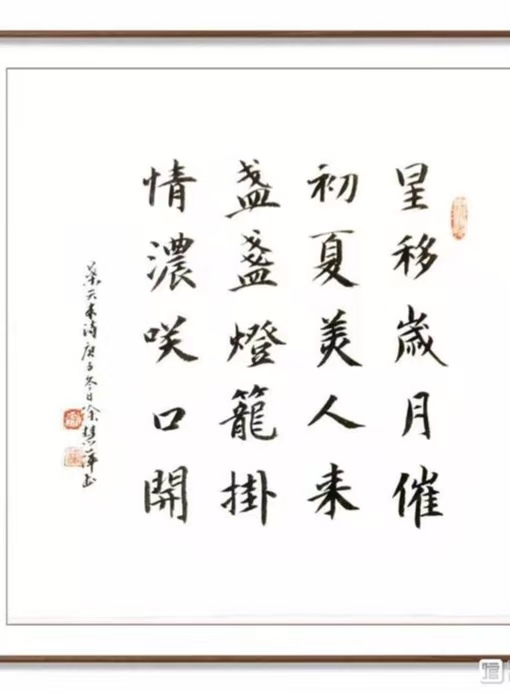 星移歲月催
初夏美人来
盏盏燈籠掛
情濃咲口開
庚子冬日徐慧萍书